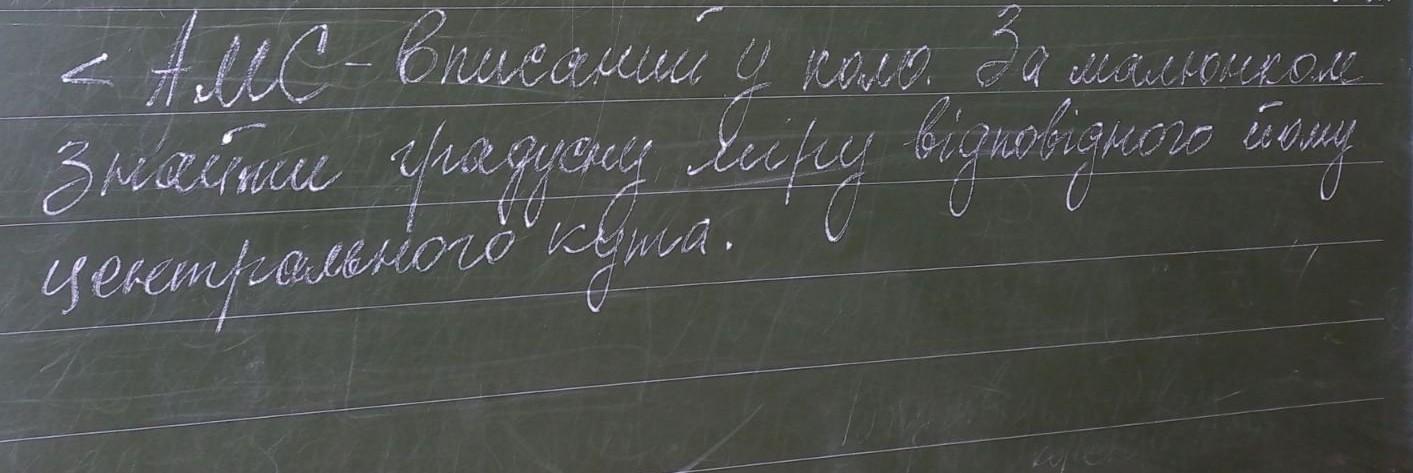 < АМС - вписаний у коло. За малюнком
знайти градусну міру відповідного йому
центрального кута.